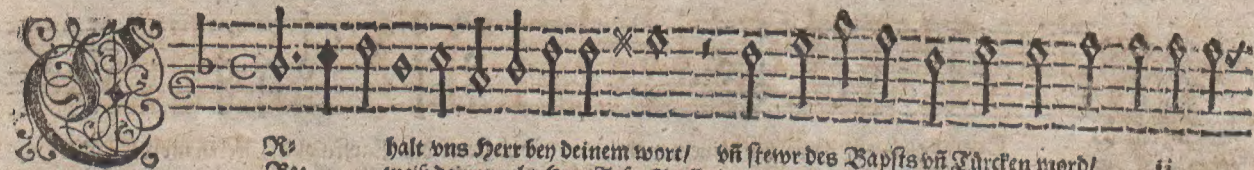 ER⸗ halt vns Herr bey deinem wort/ vñ stewr des Bapsts vñ Türcken mord/ ij